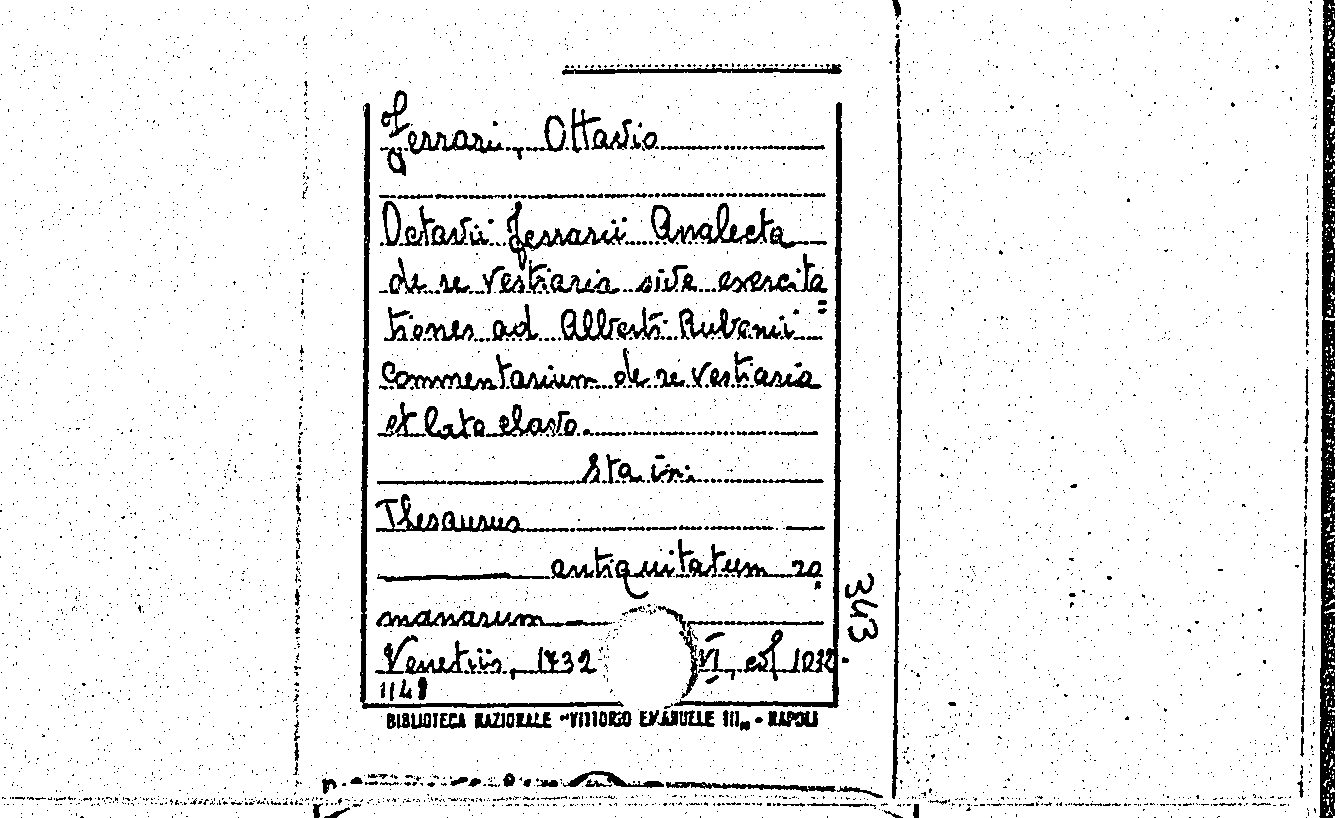 Ferrari, Ottavio
Octavii Ferrarii Analecta
de re vestiaria sive exercita
=
tiones ad Alberti Rubenii
Commentarium de re vestiaria
et lato clavo.
Sta in:
Thesaurus
antiquitatum ro
manarum
Venetiis, 1732 VI, col
1148
343
BIBLIOTECA NAZIONALE "VITTORIO EMANUELE III„ - NAPOLI